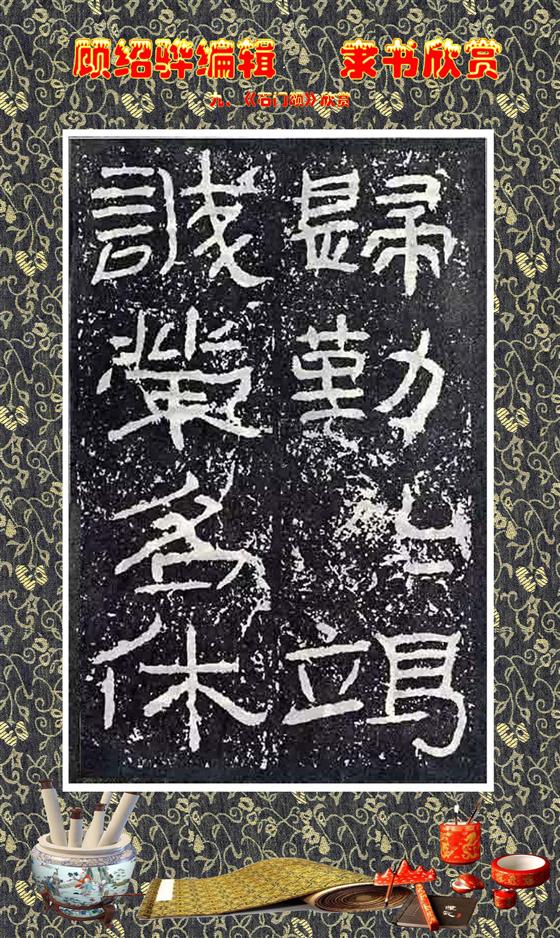 顾绍骅编辑 隶书欣赏
九、《石门颂》欣赏
歸勤竭
誠榮名休